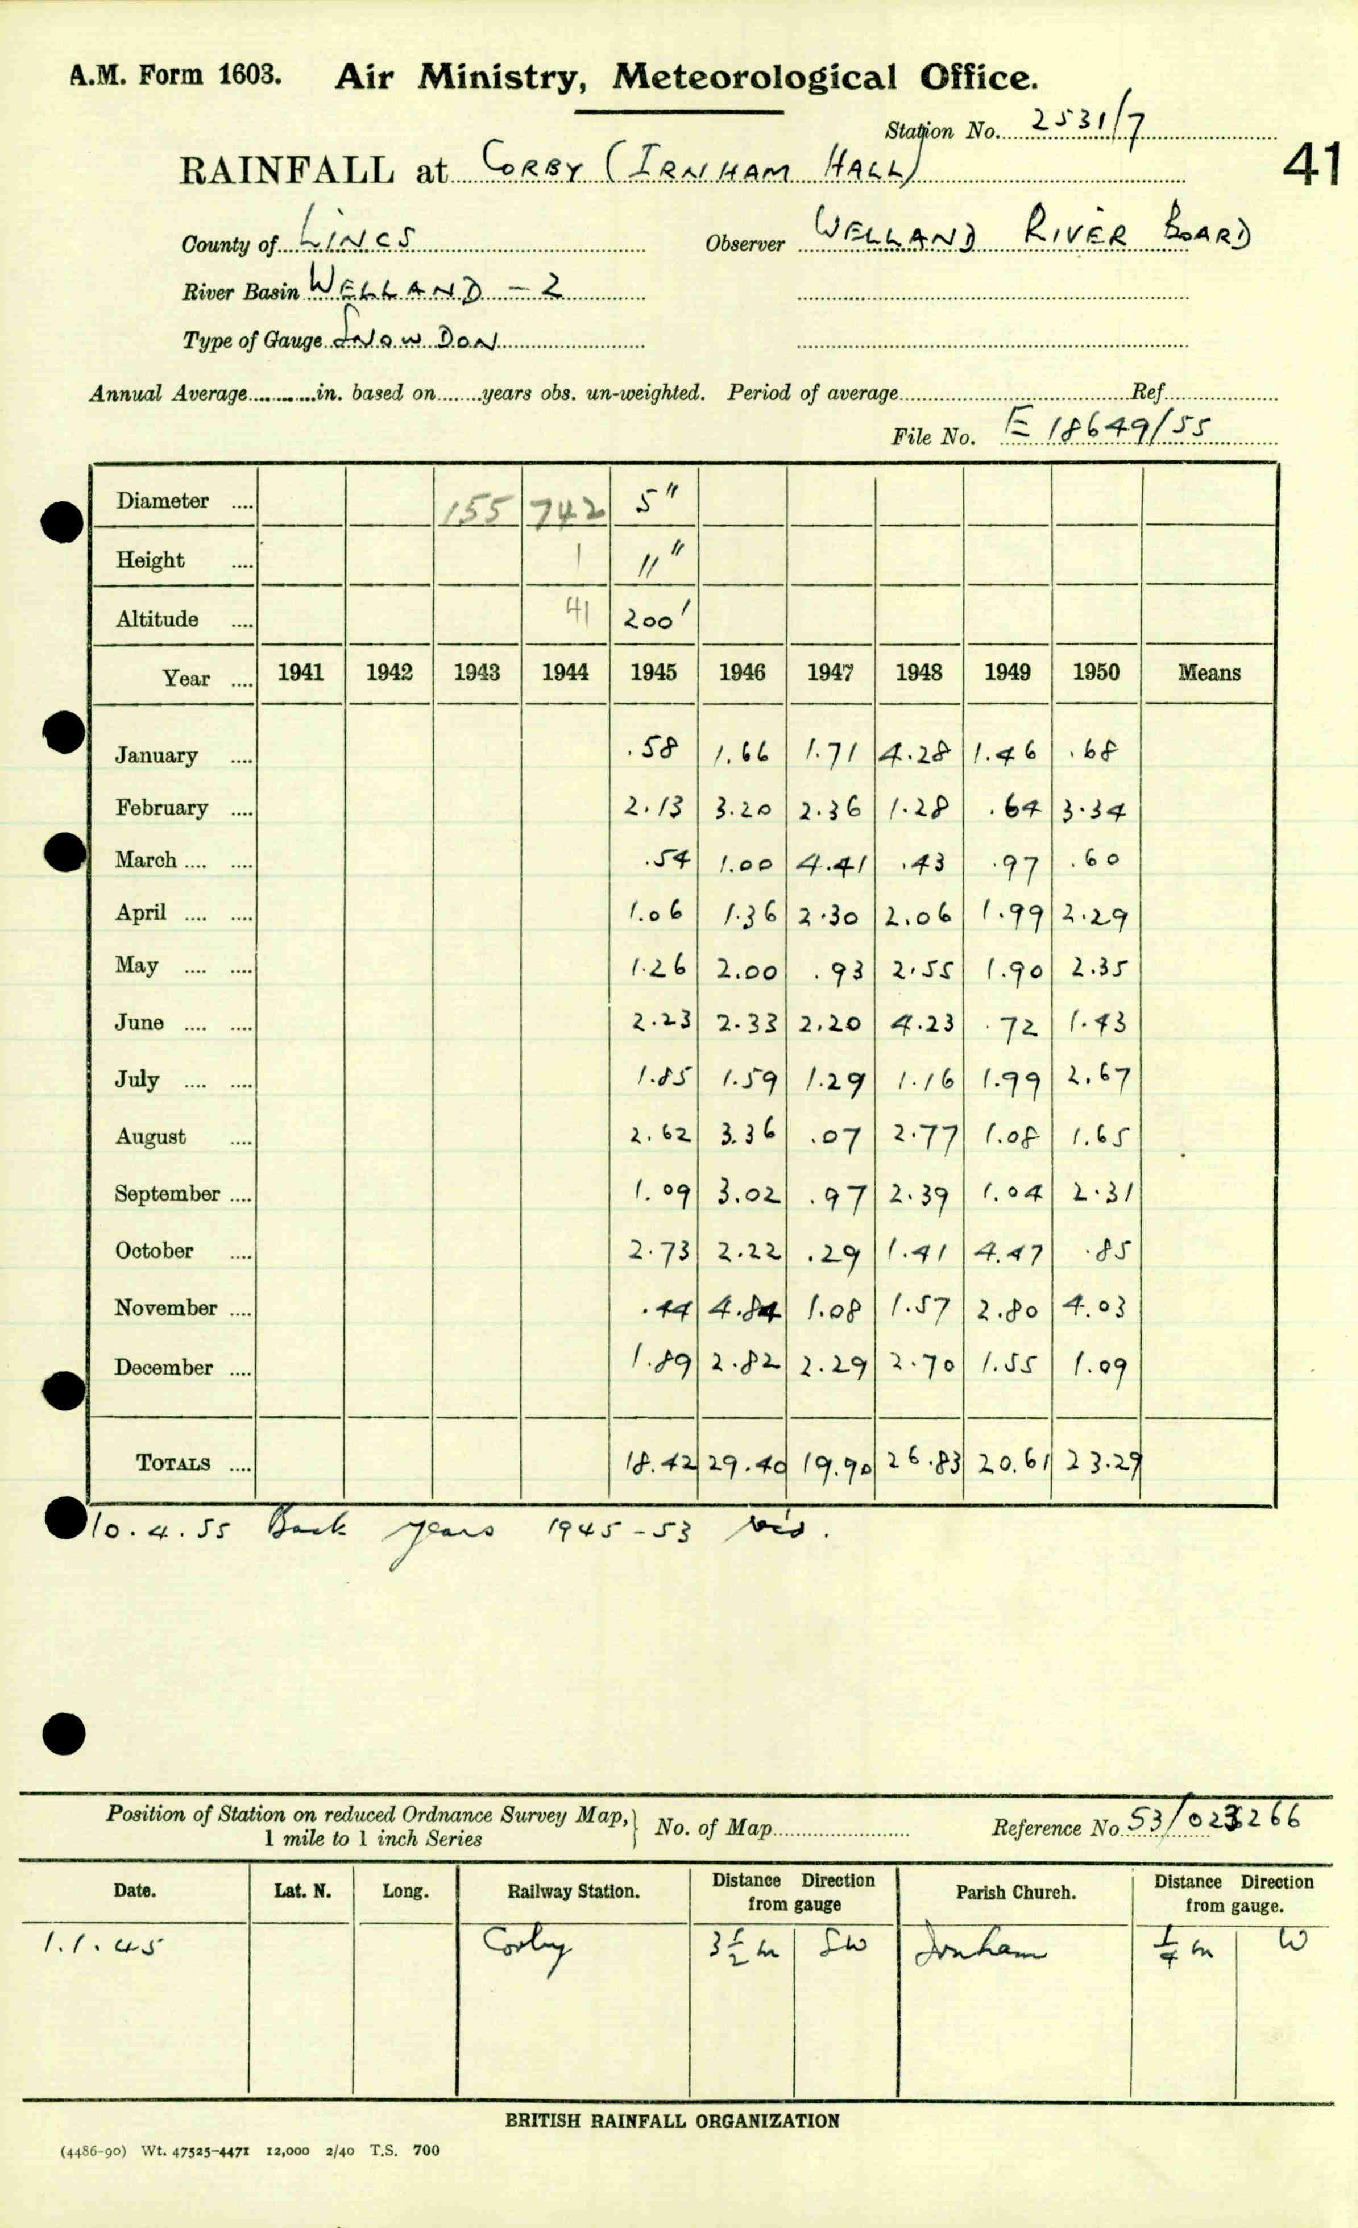 A.M. Form 1603. Air Ministry, Meteorological Office.
Station No. 2531/7
41
RAINFALL at CORBY (IRNHAM HALL)
County of LINCS Observer WELLAND RIVER BOARD
River Basin WELLAND - 2
Type of Gauge SNOWDON
Annual Average............in. based on........years obs. un-weighted. Period of average........Ref........
File No. E 18649/55
Diameter .... 155 742 5"
Height .... 1 11"
Altitude .... 41 200'
Year .... 1941 1942 1943 1944 1945 1946 1947 1948 1949 1950 Means
January .... .58 1.66 1.71 4.28 1.46 .68
February .... 2.13 3.20 2.36 1.28 .64 3.34
March .... .... .54 1.00 4.41 .43 .97 .60
April .... .... 1.06 1.36 2.30 2.06 1.99 2.29
May .... .... 1.26 2.00 .93 2.55 1.90 2.35
June .... .... 2.23 2.33 2.20 4.23 .72 1.43
July .... .... 1.85 1.59 1.29 1.16 1.99 2.67
August .... 2.62 3.36 .07 2.77 1.08 1.65
September .... 1.09 3.02 .97 2.39 1.04 2.31
October .... 2.73 2.22 .29 1.41 4.47 .85
November .... .44 4.84 1.08 1.57 2.80 4.03
December .... 1.89 2.82 2.29 2.70 1.55 1.09
TOTALS .... 18.42 29.40 19.90 26.83 20.61 23.29
10.4.55 Back years 1945-53 rec'd.
Position of Station on reduced Ordnance Survey Map, 1 mile to 1 inch Series } No. of Map........ Reference No. 53/023266
Date. Lat. N. Long. Railway Station. Distance Direction from gauge Parish Church. Distance Direction from gauge.
1.1.45 Corby 3 1/2 m SW Irnham 1/4 m W
BRITISH RAINFALL ORGANIZATION
(4486-90) Wt. 47525-4471 12,000 2/40 T.S. 700